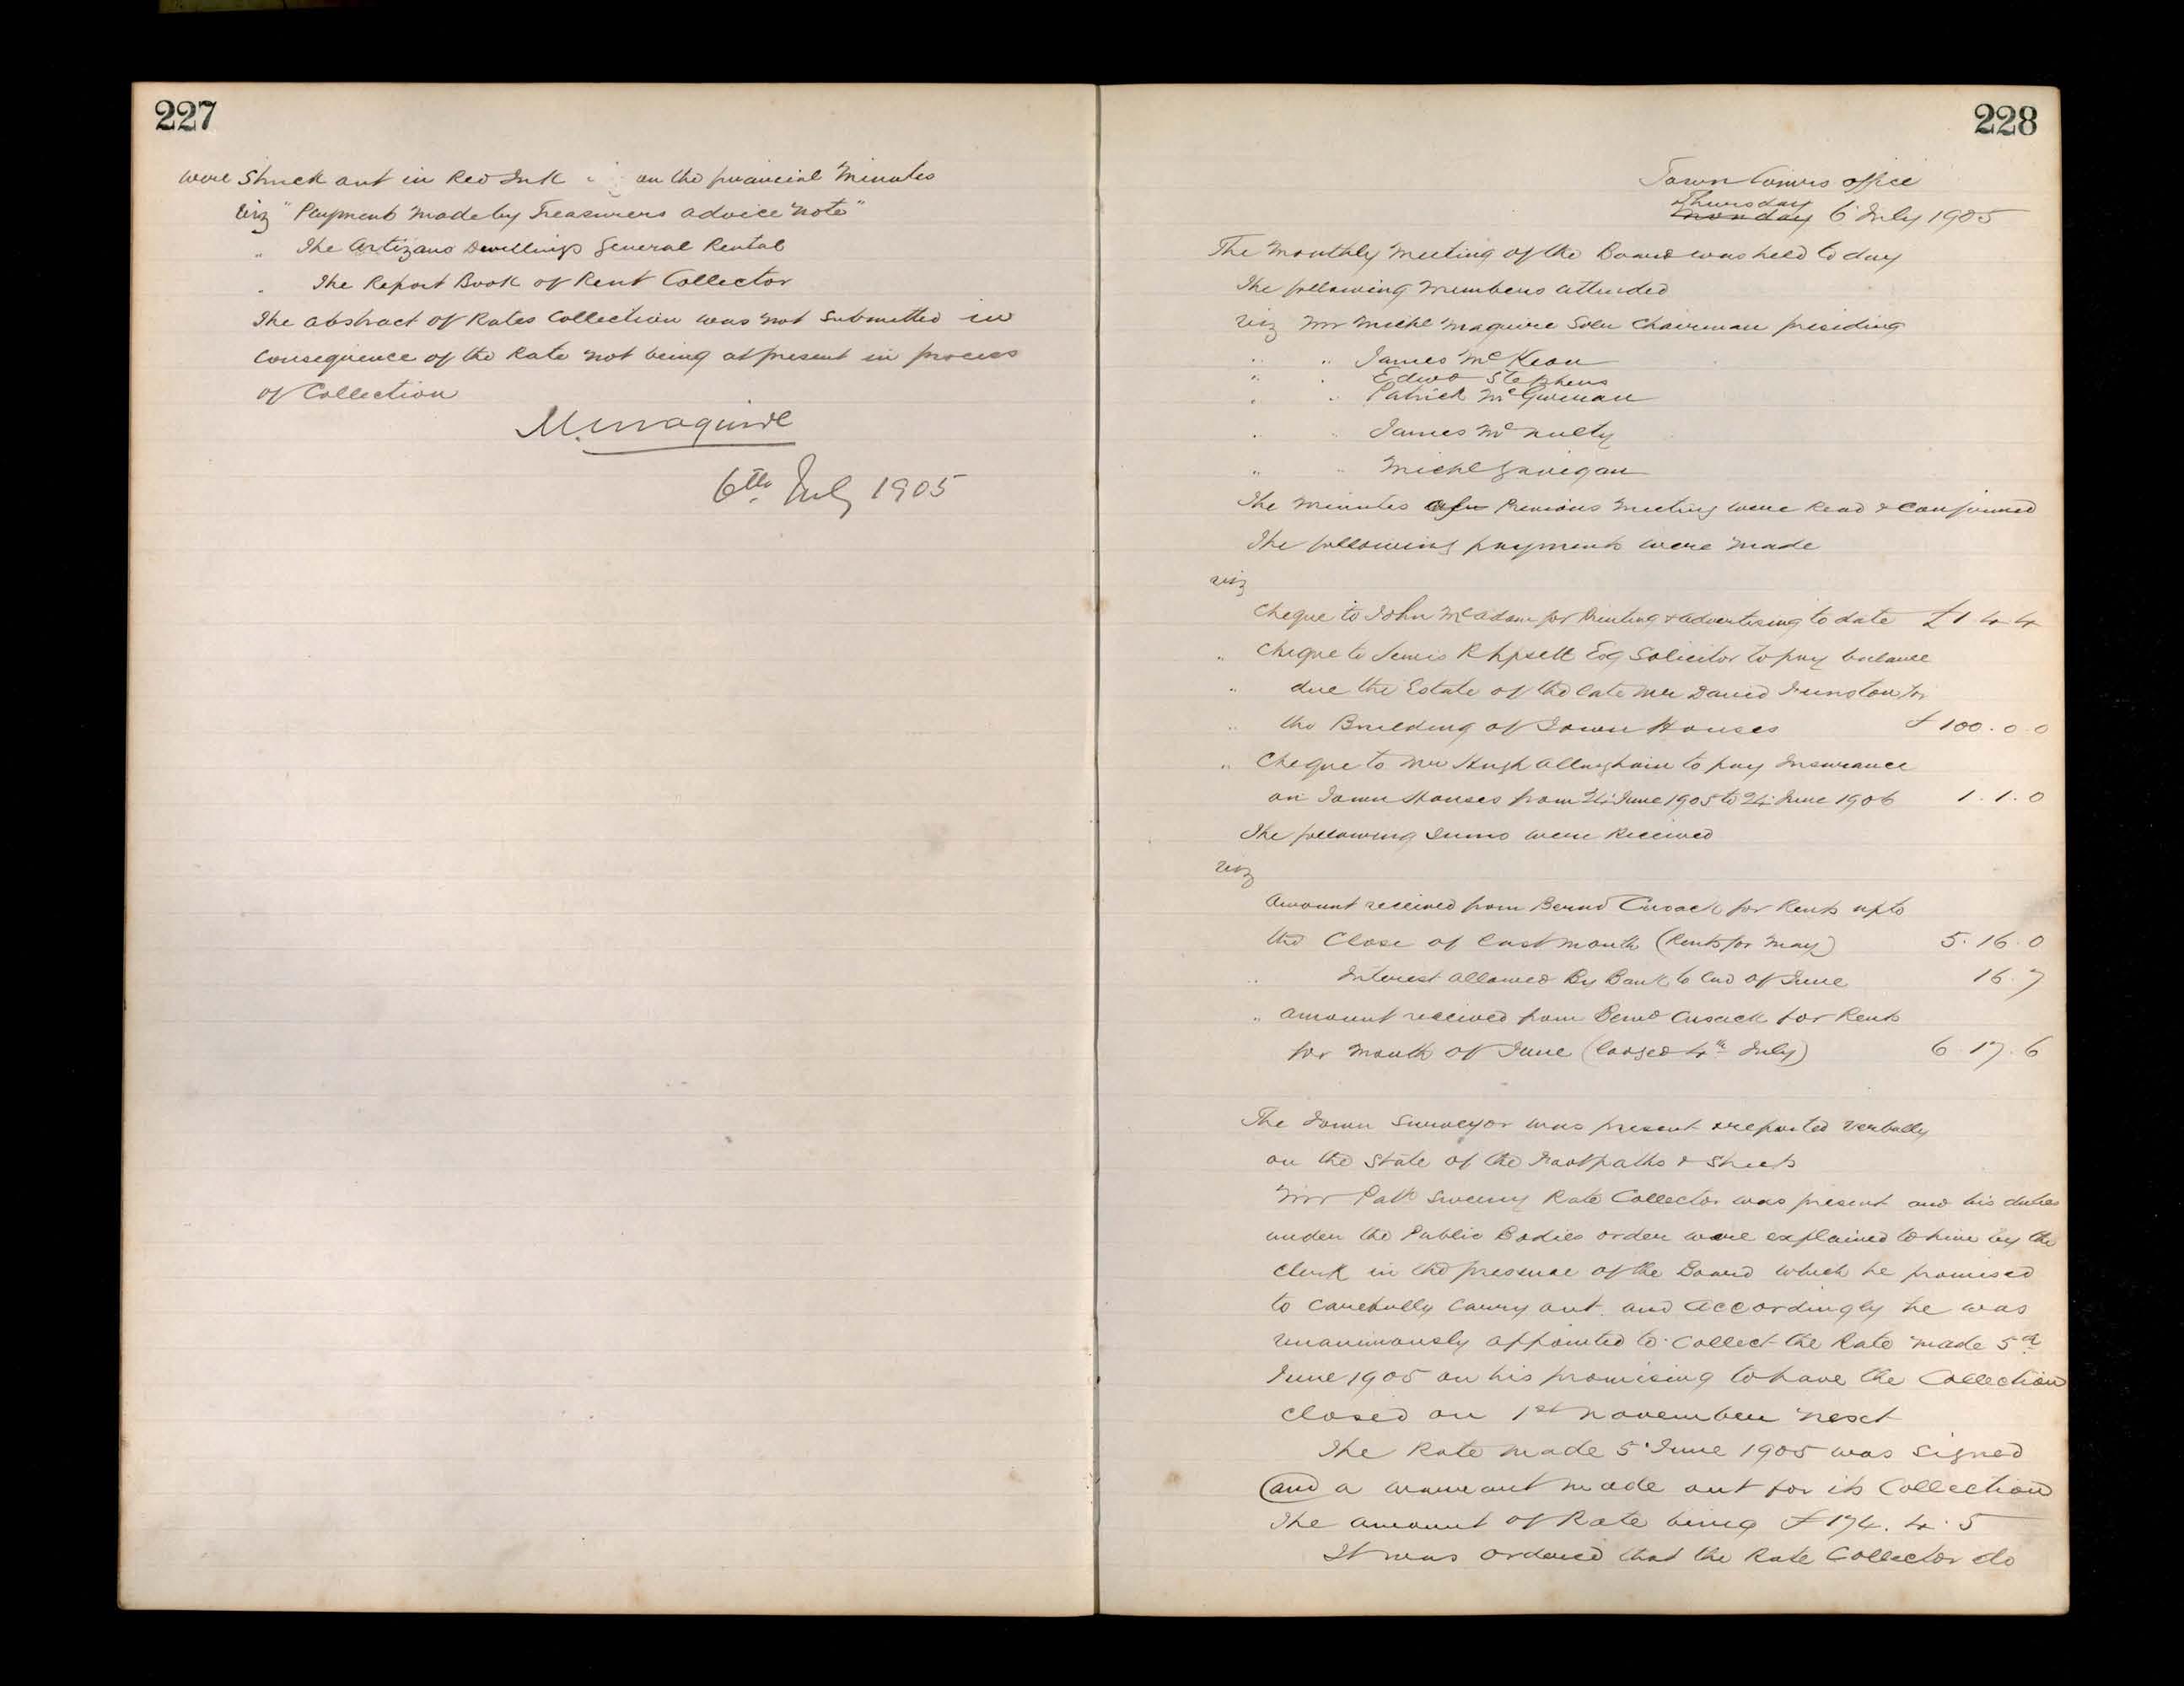 227
were Struck out in Red Ink on the financial Minutes
viz " Payment made by Treasurers advice note"
" The Artizans Dwellings General Rental
" The Report Book of Rent Collector
The abstract of Rates Collection was not Submitted in
Consequence of the Rate not being at present in process
of Collection
M. Maguire
6th July 1905
228
Town Comrs office
Thursday
Monday 6 July 1905
The Monthly Meeting of the Board was held to day
The following Members attended
viz Mr Michl Maguire Solr Chairman presiding
" " James McKeon
" " Edwd Stephens
" " Patrick McGurman
" " James McNulty
" " Michl Gavigan
The Minutes of Previous Meeting were Read & Confirmed
The following payments were made
viz
Cheque to John McAdam for Printing & Advertising to date £1.4.4
" Cheque to Lewis R Lipsett Esq Solicitor to pay balance
" due the Estate of the late Mr David Funston for
" the Building of Town Houses £100.0.0
" Cheque to Mr Hugh Allingham to pay Insurance
on Town Houses from 24 June 1905 to 24 June 1906 1.1.0
The following Sums were Received
viz
Amount received from Bernd Cusack for Rents up to
the Close of last month (Rents for May) 5.16.0
" Interest allowed By Bank to End of June 16.7
" amount received from Bernd Cusack for Rents
for Month of June (lodged 4th July) 6.17.6
The Town Surveyor was present & reported verbally
on the State of the Footpaths & Streets
Mr Patk Sweeny Rate Collector was present and his duties
under the Public Bodies order were explained to him by the
Clerk in the presence of the Board which he promised
to carefully carry out. and accordingly he was
unanimously appointed to Collect the Rate made 5th
June 1905 on his promising to have the Collection
closed on 1st November next
The Rate made 5 June 1905 was Signed
and a warrant made out for its Collection
The amount of Rate being £174.4.5
It was ordered that the Rate Collector do